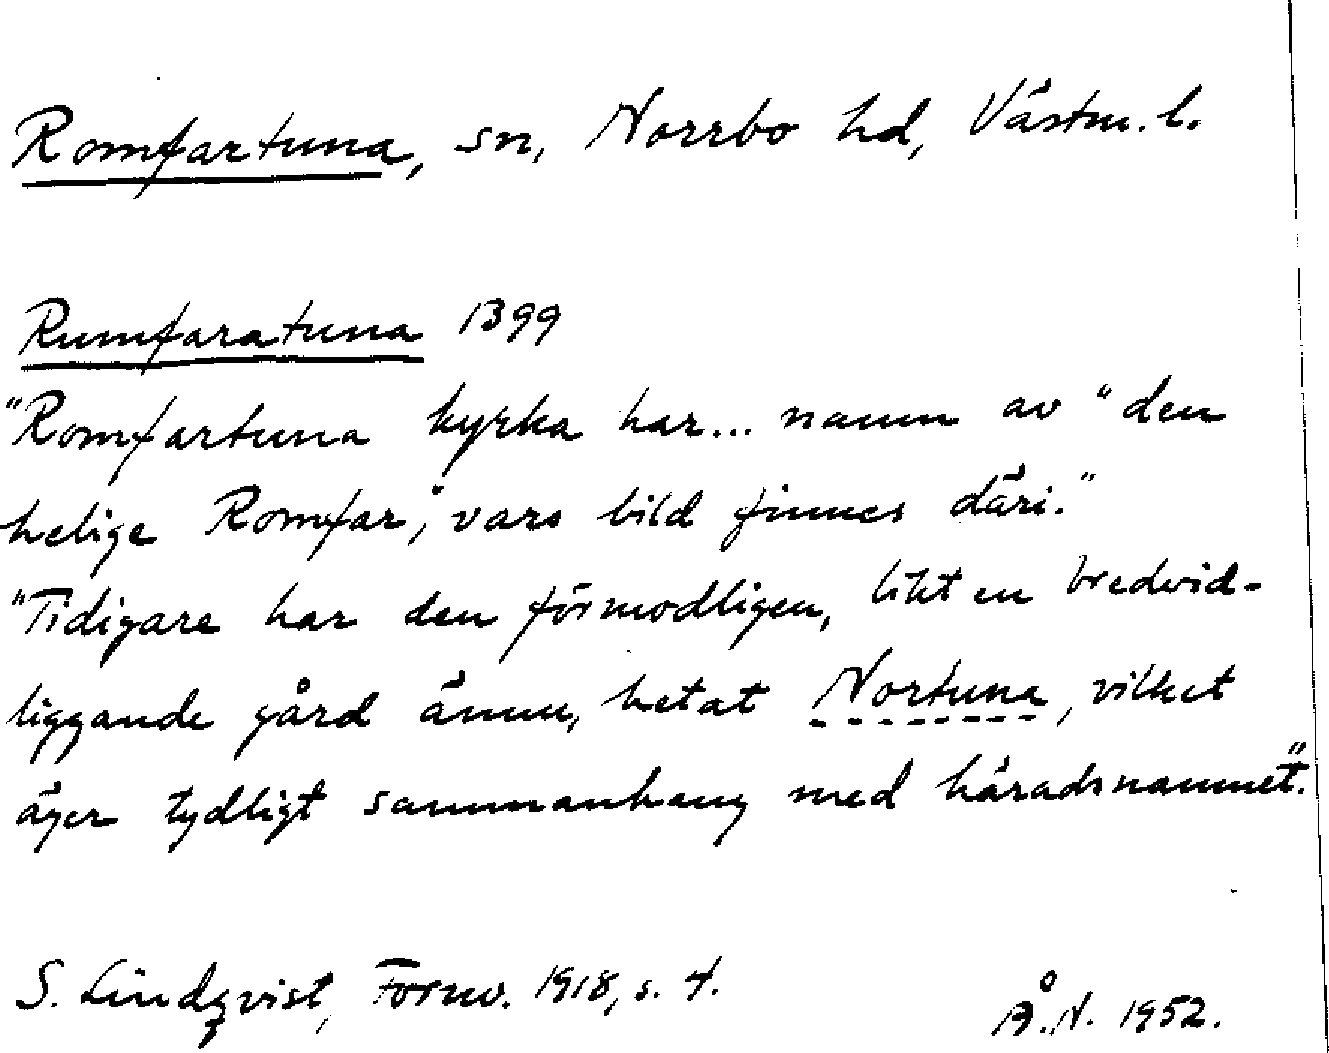 Romfartuna, sn, Norrbo hd, Västm. l.
Rumfaratuna 1399
"Romfartuna kyrka har... namn av "den
helige Romfar", vars bild finnes däri."
"Tidigare har den förmodligen, likt en bredvid-
liggande gård ännu, hetat Nortuna, vilket
äger tydligt sammanhang med häradsnamnet".
S. Lindqvist, Fornv. 1918, s. 4.
Å.N. 1952.